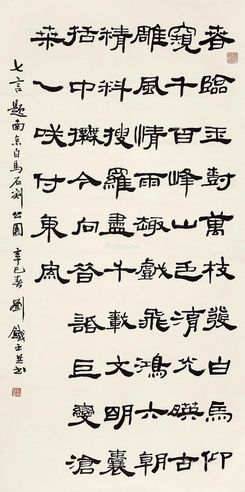 春臨玉樹萬枝發白馬仰
窺千百峰山色清光暎古
雕風情雨趣戲飛鴻六朝
精料搜羅盡千載文明囊
括中撫今向昔話巨變滄
桑一咲付東風
七言題南京白馬石刻公園 辛巳春 劉鐵並書